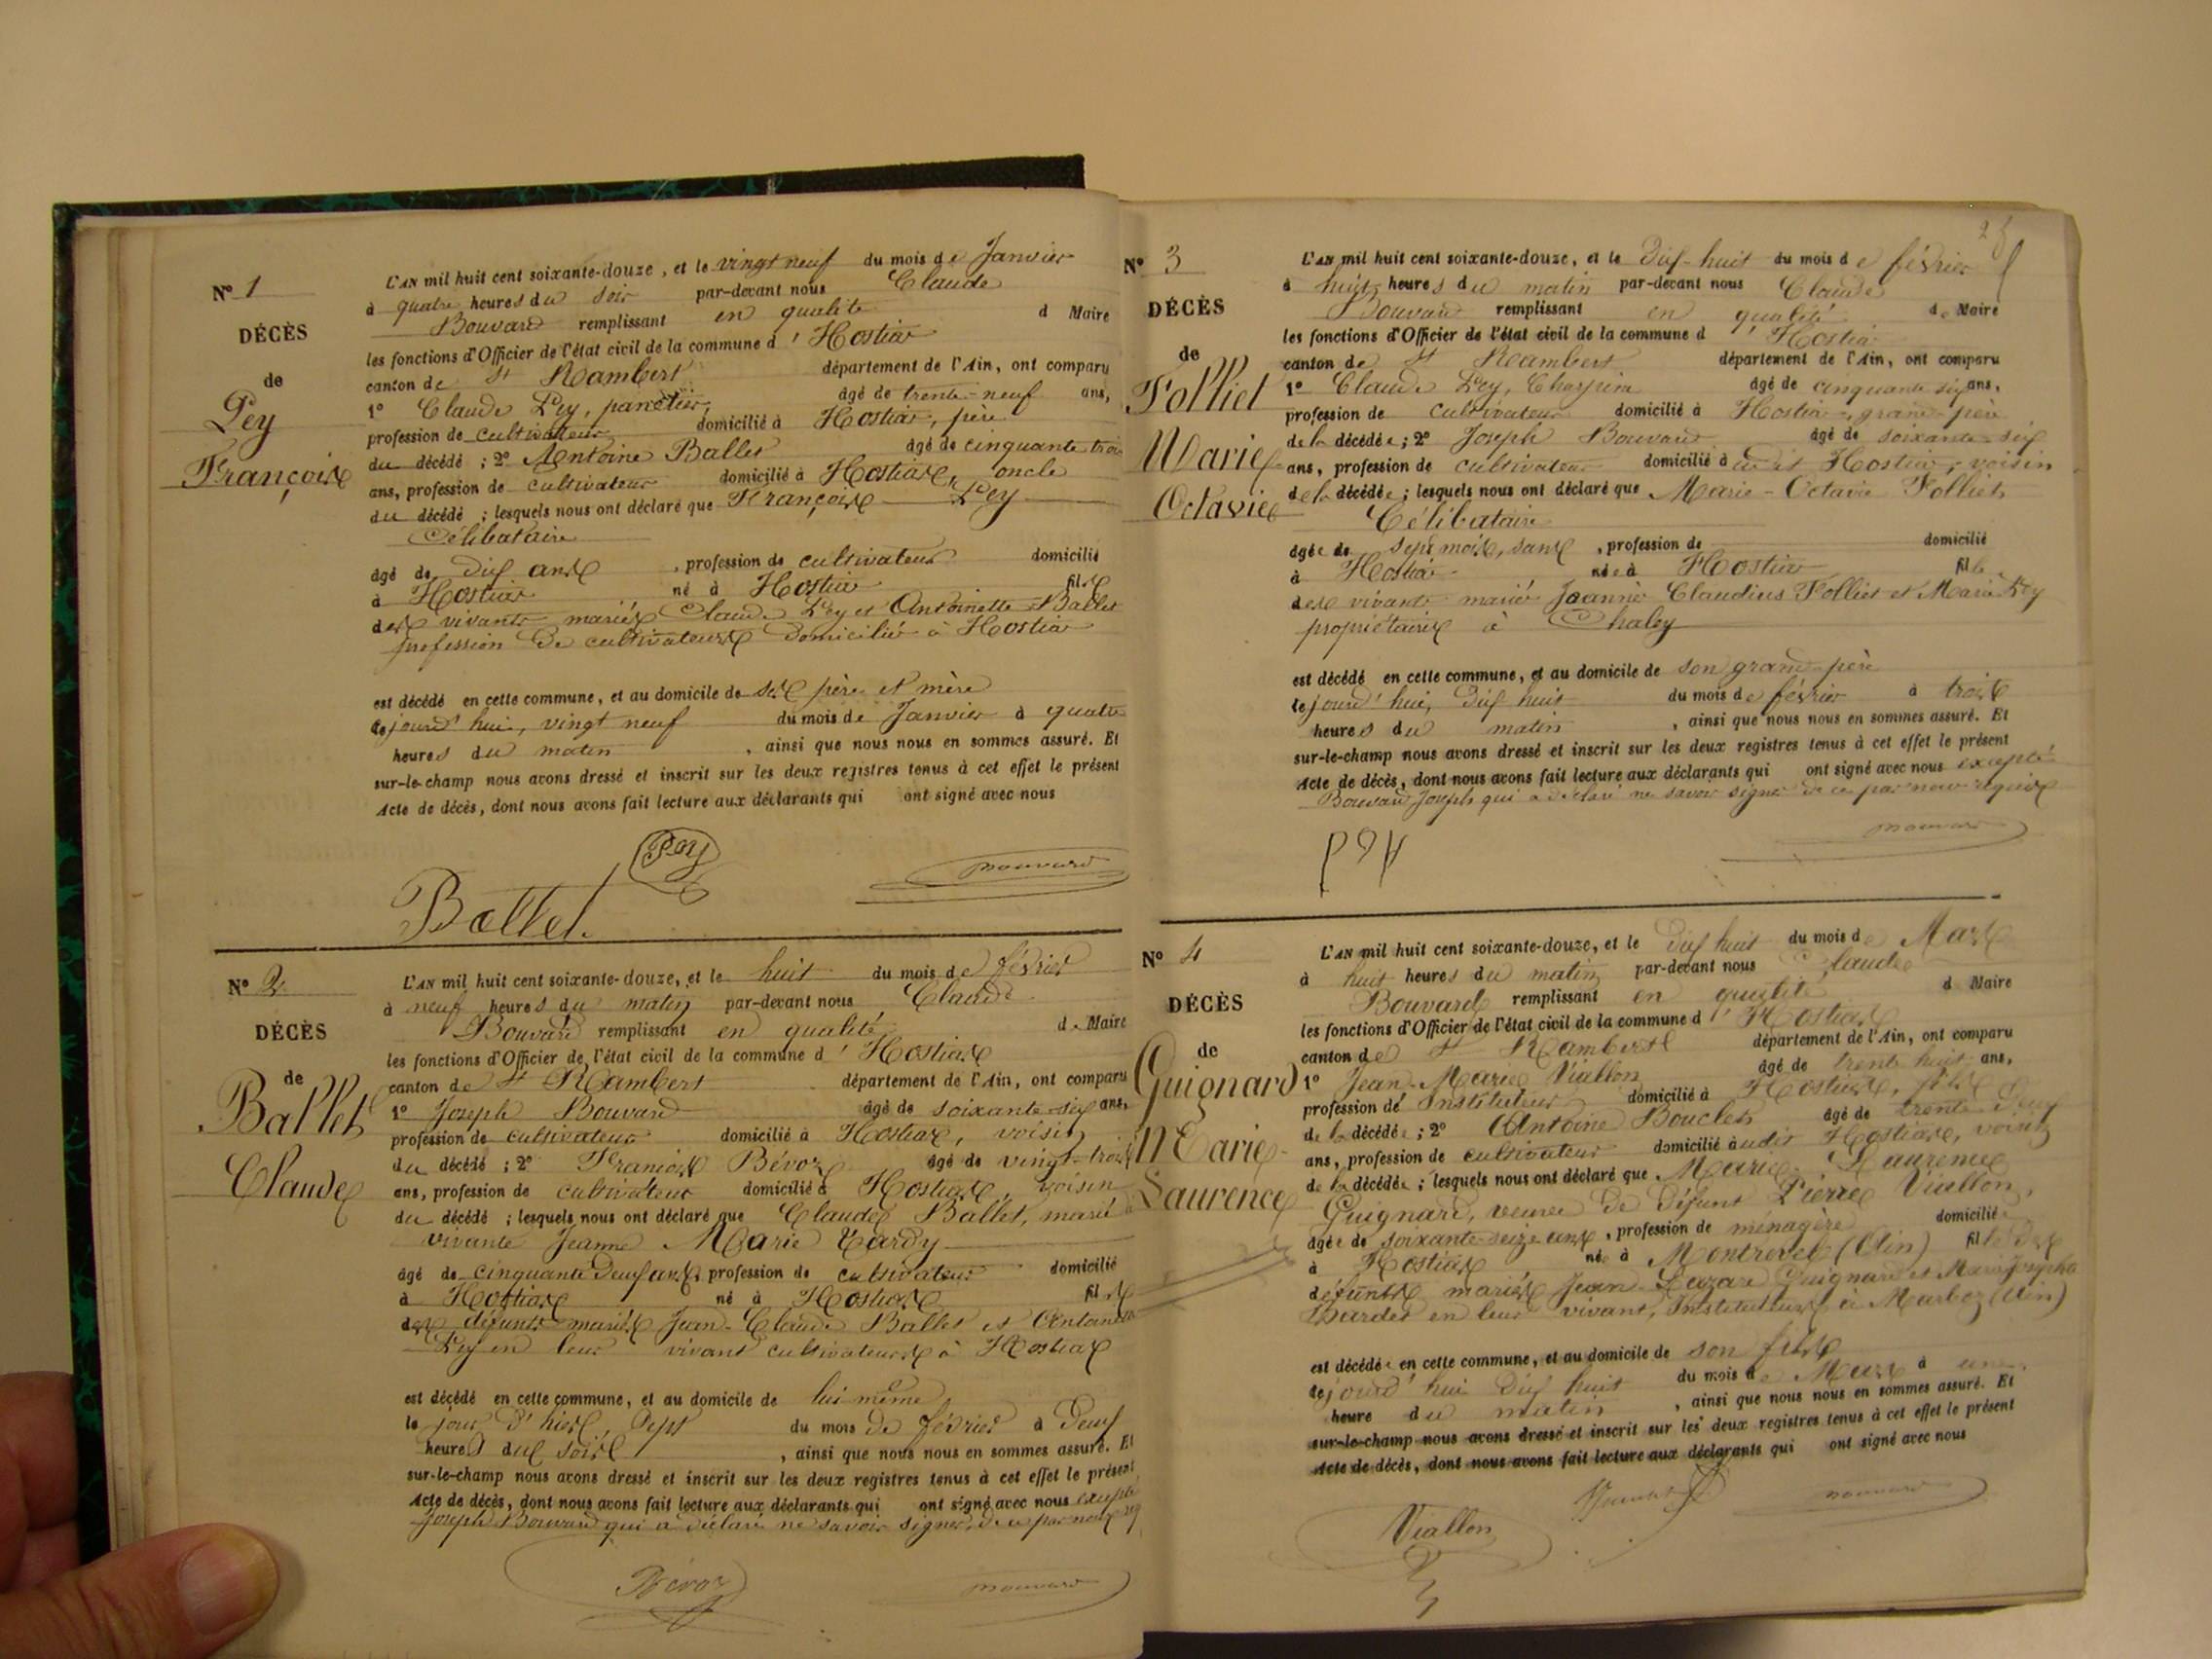 Nº 1
DÉCÈS
de
Pey
François
L'AN mil huit cent soixante-douze, et le vingt neuf du mois de Janvier
à quatre heures du soir par-devant nous Claude
Bouvard remplissant en qualité d Maire
les fonctions d'Officier de l'état civil de la commune d' Hostiaz
canton de St Rambert département de l'Ain, ont comparu
1º Claude Pey, âgé de trente-neuf ans,
profession de cultivateur domicilié à Hostiaz, père
du décédé ; 2º Antoine Ballet âgé de cinquante trois
ans, profession de cultivateur domicilié à Hostiaz, oncle
du décédé ; lesquels nous ont déclaré que François Pey
Célibataire
âgé de dix ans , profession de cultivateur domicilié
à Hostiaz né à Hostiaz fils
des vivants mariés Claude Pey et Antoinette Ballet
profession de cultivateurs domiciliés à Hostiaz
est décédé en cette commune, et au domicile de ses père et mère
cejourd'hui, vingt neuf du mois de Janvier à quatre
heures du matin , ainsi que nous nous en sommes assuré. Et
sur-le-champ nous avons dressé et inscrit sur les deux registres tenus à cet effet le présent
Acte de décès, dont nous avons fait lecture aux déclarants qui ont signé avec nous
Pey
Bouvard
Ballet
Nº 2
DÉCÈS
de
Ballet
Claude
L'AN mil huit cent soixante-douze, et le huit du mois de février
à neuf heures du matin par-devant nous Claude
Bouvard remplissant en qualité de Maire
les fonctions d'Officier de l'état civil de la commune d' Hostiaz
canton de St Rambert département de l'Ain, ont comparu
1º Joseph Bouvard âgé de soixante-six ans,
profession de cultivateur domicilié à Hostiaz, voisin
du décédé ; 2º François Bévoz âgé de vingt-trois
ans, profession de cultivateur domicilié à Hostiaz, voisin
du décédé ; lesquels nous ont déclaré que Claude Ballet, marié à
vivante Jeanne Marie Tardy
âgé de cinquante deux ans, profession de cultivateur domicilié
à Hostiaz né à Hostiaz fils
des défunts mariés Jean-Claude Ballet et
Pey en leur vivant cultivateurs à Hostiaz
est décédé en cette commune, et au domicile de lui même
le jour d'hier, sept du mois de février à deux
heures du soir , ainsi que nous nous en sommes assuré. Et
sur-le-champ nous avons dressé et inscrit sur les deux registres tenus à cet effet le présent
Acte de décès, dont nous avons fait lecture aux déclarants qui ont signé avec nous excepté
Joseph Bouvard qui a déclaré ne savoir signer, de ce par nous
Bévoz
Bouvard
Nº 3
DÉCÈS
de
Folliet
Marie
Octavie
L'AN mil huit cent soixante-douze, et le dix-huit du mois de février
à huit heures du matin par-devant nous Claude
Bouvard remplissant en qualité de Maire
les fonctions d'Officier de l'état civil de la commune d' Hostiaz
canton de St Rambert département de l'Ain, ont comparu
1º Claude Pey, âgé de cinquante six ans,
profession de cultivateur domicilié à Hostiaz, grand-père
de la décédée ; 2º Joseph Bouvard âgé de soixante-six
ans, profession de cultivateur domicilié audit Hostiaz, voisin
de la décédée ; lesquels nous ont déclaré que Marie-Octavie Folliet
Célibataire
âgée de sept mois, sans , profession de domicilié
à Hostiaz née à Hostiaz fille
des vivants mariés Joannès Claudius Folliet et Marie Pey
propriétaires à Chaley
est décédé en cette commune, et au domicile de son grand-père
cejourd'hui, dix huit du mois de février à trois
heures du matin , ainsi que nous nous en sommes assuré. Et
sur-le-champ nous avons dressé et inscrit sur les deux registres tenus à cet effet le présent
Acte de décès, dont nous avons fait lecture aux déclarants qui ont signé avec nous excepté
Bouvard Joseph qui a déclaré ne savoir signer de ce par nous requis
Pey
Bouvard
Nº 4
DÉCÈS
de
Guignard
Marie
Laurence
L'AN mil huit cent soixante-douze, et le dix huit du mois de Mars
à huit heures du matin par-devant nous Claude
Bouvard remplissant en qualité d Maire
les fonctions d'Officier de l'état civil de la commune d' Hostiaz
canton de St Rambert département de l'Ain, ont comparu
1º Jean-Marie Viallon âgé de trente huit ans,
profession de Instituteur domicilié à Hostiaz, fils
de la décédée ; 2º Antoine Bouclet âgé de trente deux
ans, profession de cultivateur domicilié audit Hostiaz, voisin
de la décédée ; lesquels nous ont déclaré que Marie Laurence
Guignard, veuve de défunt Pierre Viallon,
âgée de soixante-seize ans, profession de ménagère domiciliée
à Hostiaz née à Montrevel (Ain) fille des
défunts mariés Jean-Lazare Guignard et Marie Josephte
en leur vivant, Instituteurs à Marboz (Ain)
est décédée en cette commune, et au domicile de son fils
cejourd'hui dix huit du mois de Mars à une
heure du matin , ainsi que nous nous en sommes assuré. Et
sur-le-champ nous avons dressé et inscrit sur les deux registres tenus à cet effet le présent
Acte de décès, dont nous avons fait lecture aux déclarants qui ont signé avec nous
Bouvard
Viallon